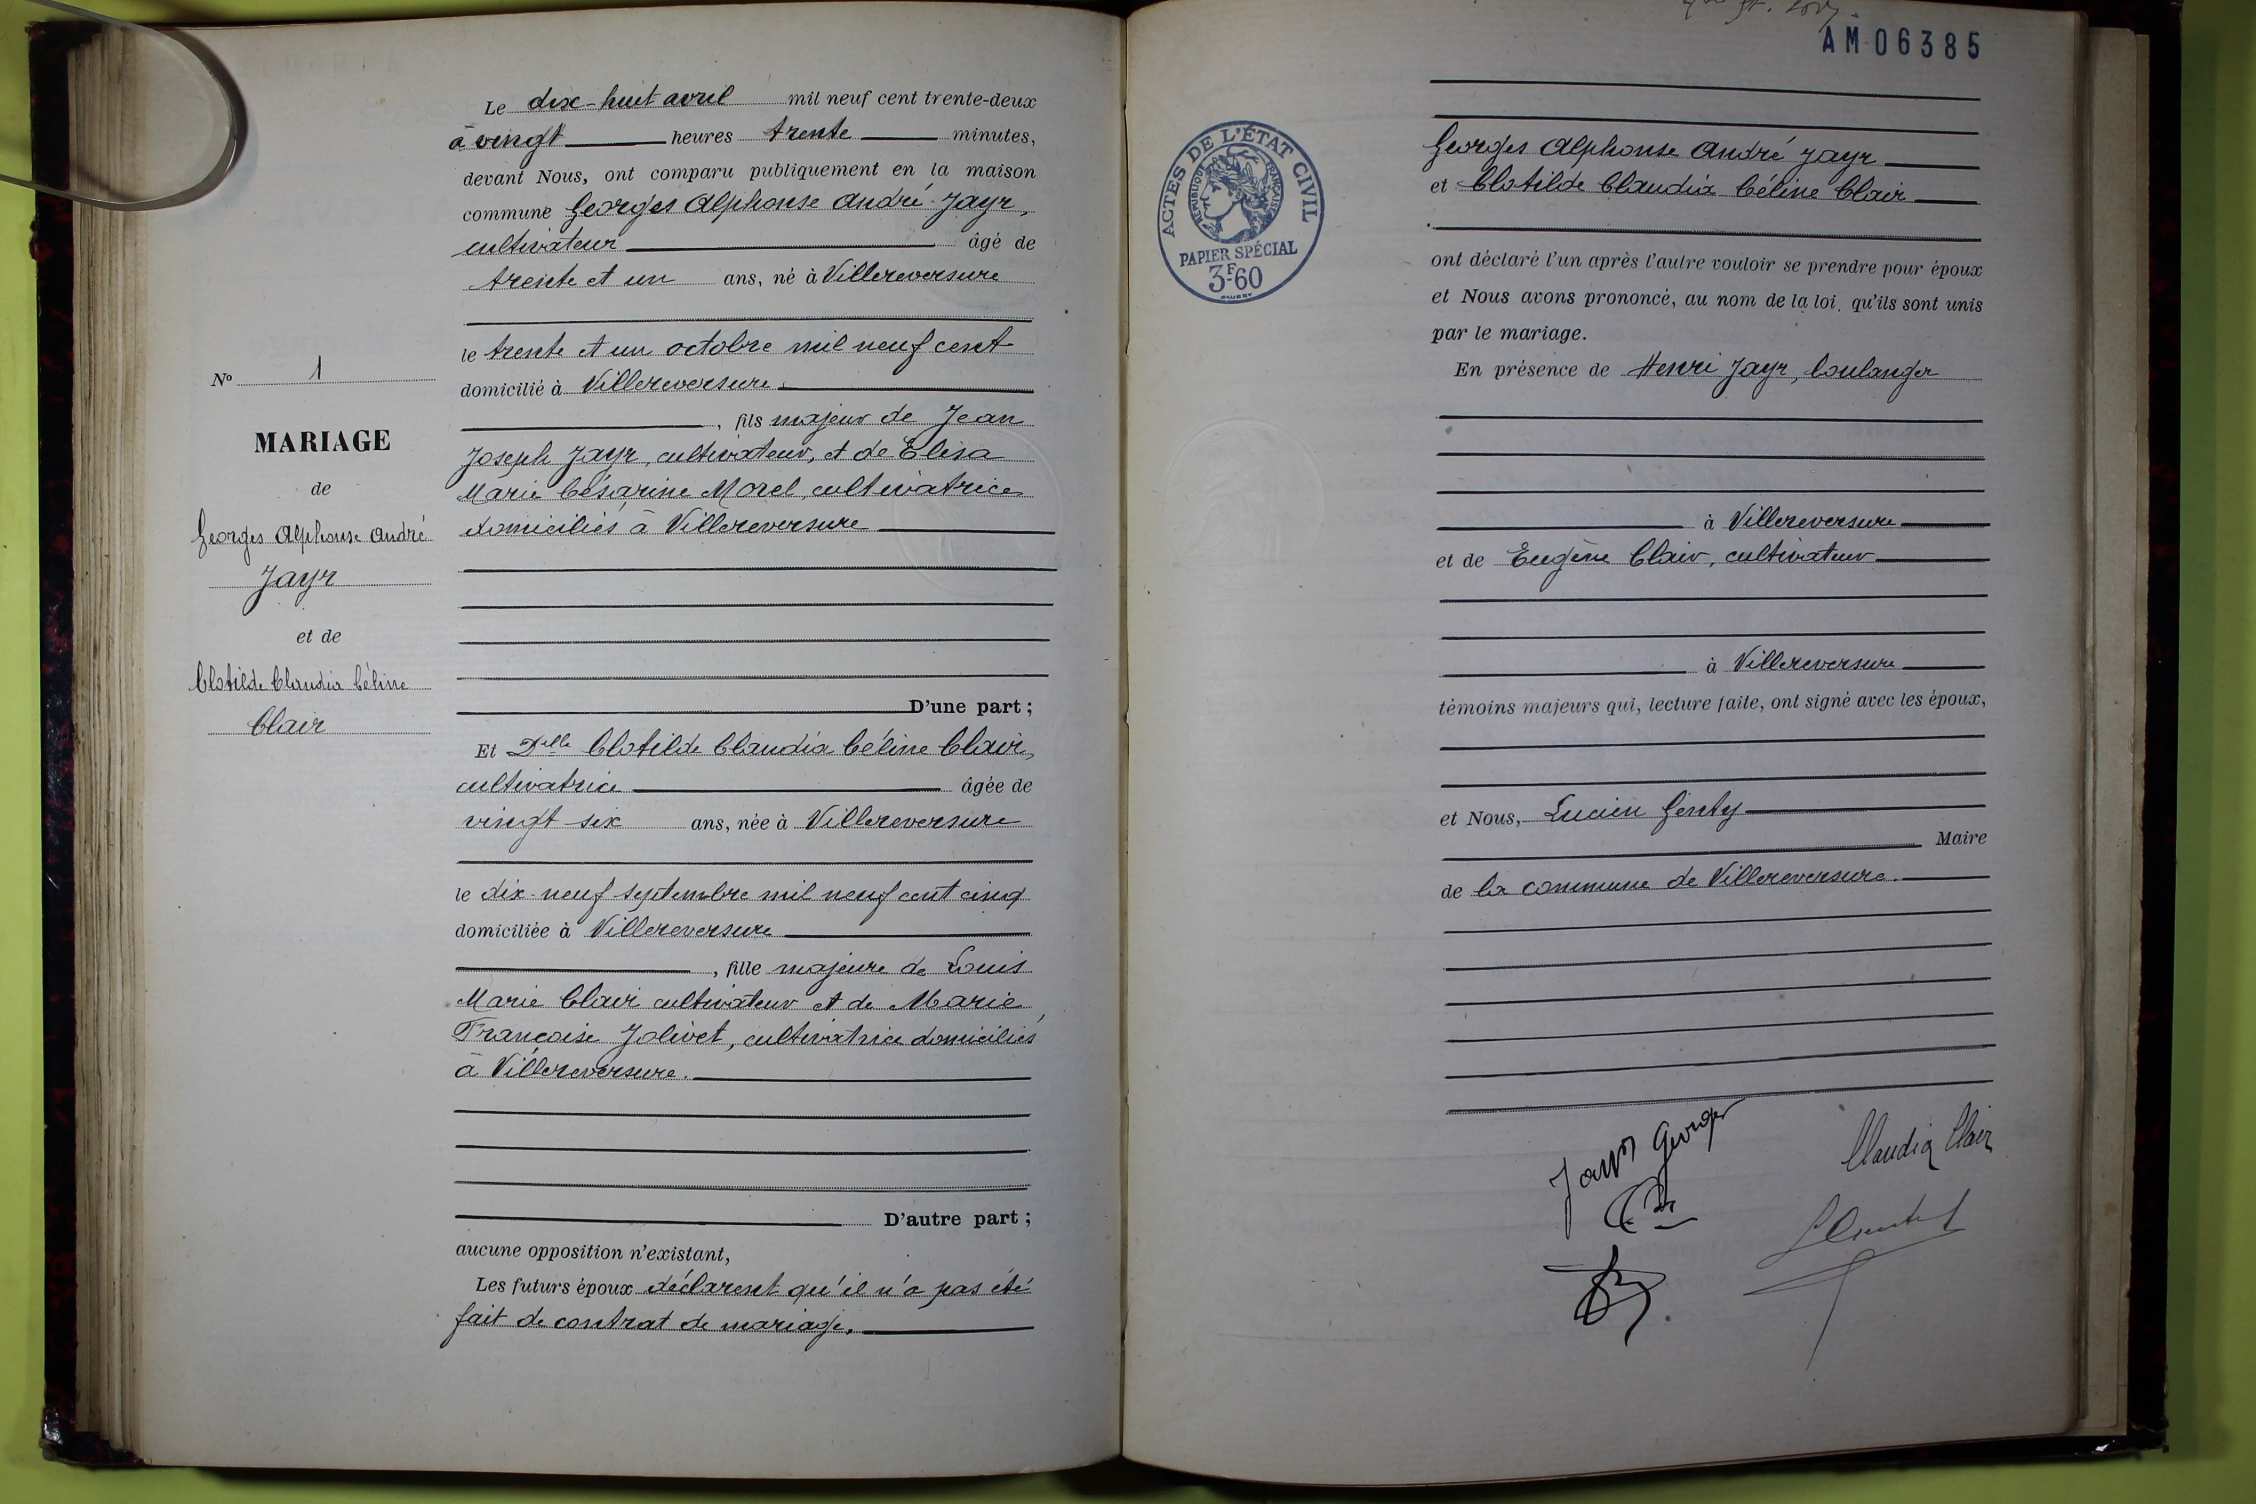 Le dix-huit avril mil neuf cent trente-deux
à vingt heures trente minutes,
devant Nous, ont comparu publiquement en la maison
commune Georges Alphonse André Jayr,
cultivateur âgé de
trente et un ans, né à Villereversure
le trente et un octobre mil neuf cent
domicilié à Villereversure
, fils majeur de Jean
Joseph Jayr, cultivateur, et de Elisa
Marie Césarine Morel, cultivatrice
domiciliés à Villereversure
D'une part ;
Et Delle Clotilde Claudia Céline Clair,
cultivatrice âgée de
vingt-six ans, née à Villereversure
le dix-neuf septembre mil neuf cent cinq
domiciliée à Villereversure
, fille majeure de Louis
Marie Clair cultivateur et de Marie
Françoise Jolivet, cultivatrice domiciliés
à Villereversure.
D'autre part ;
aucune opposition n'existant,
Les futurs époux déclarent qu'il n'a pas été
fait de contrat de mariage.
No 1
MARIAGE
de
Georges Alphonse André
Jayr
et de
Clotilde Claudia Céline
Clair
AM 06385
ACTES DE L'ÉTAT CIVIL
RÉPUBLIQUE FRANÇAISE
PAPIER SPÉCIAL
3F60
Georges Alphonse André Jayr
et Clotilde Claudia Céline Clair
ont déclaré l'un après l'autre vouloir se prendre pour époux
et Nous avons prononcé, au nom de la loi, qu'ils sont unis
par le mariage.
En présence de Henri Jayr, boulanger
à Villereversure
et de Eugène Clair, cultivateur
à Villereversure
témoins majeurs qui, lecture faite, ont signé avec les époux,
et Nous, Lucien Genty
Maire
de la commune de Villereversure.
Jayr Georges
Claudia Clair